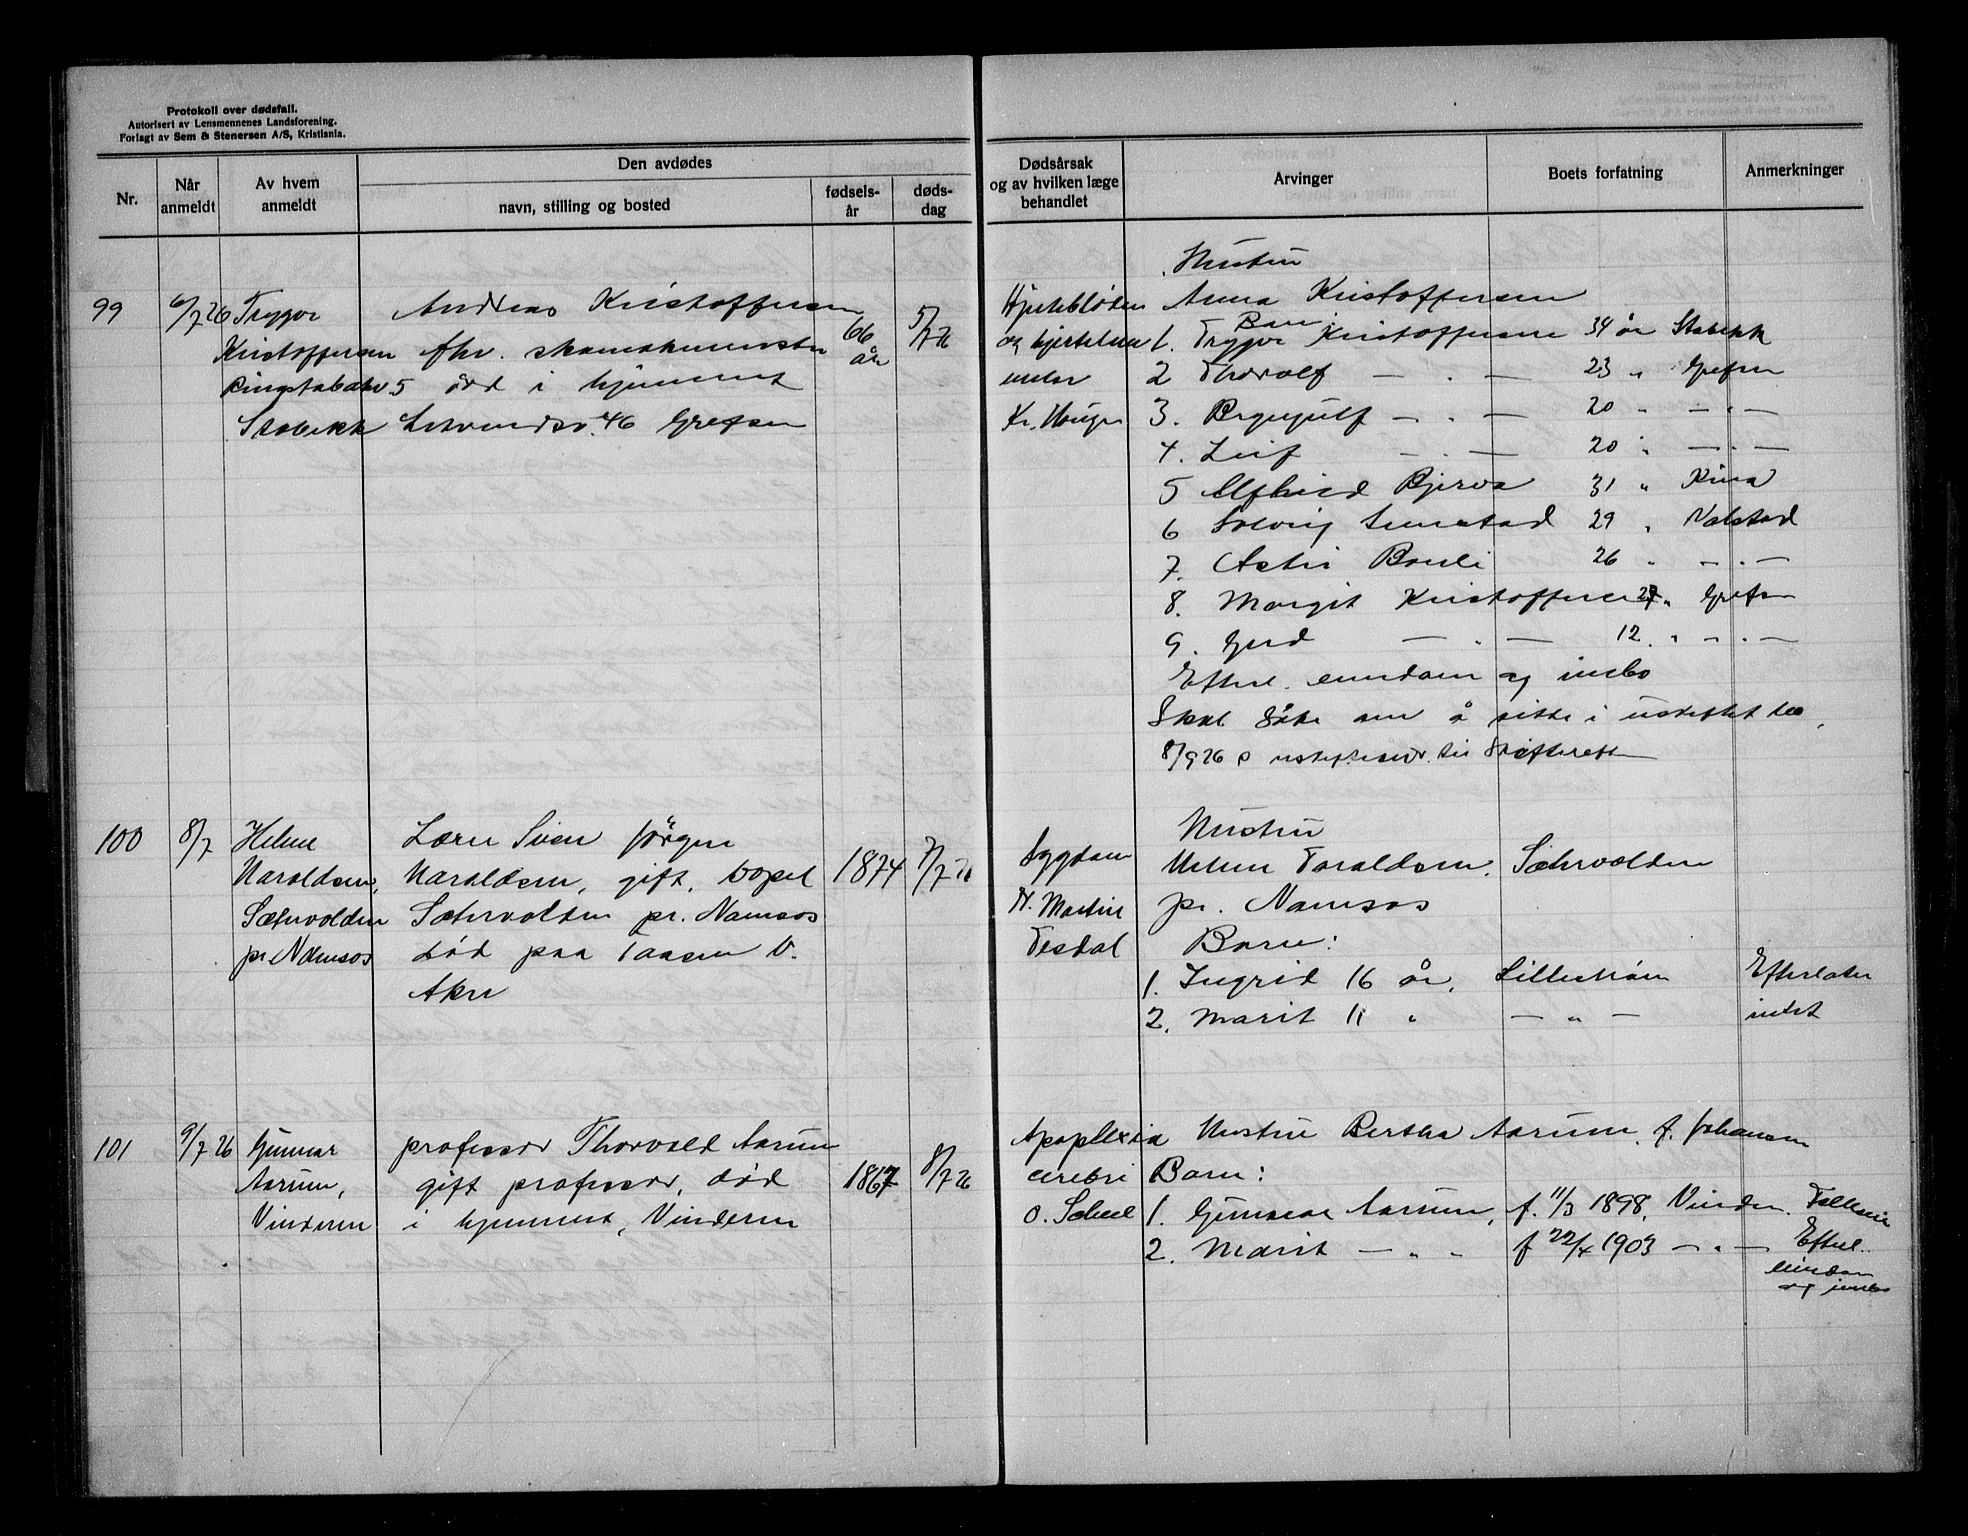 Protokoll over dødsfall.
Autorisert av Lensmennenes Landsforening.
Forlagt av Sem & Stenersen A/S, Kristiania.
Nr.
Når anmeldt
Av hvem anmeldt
Den avdødes
navn, stilling og bosted
fødsels-år
døds-dag
Dødsårsak og av hvilken læge behandlet
Arvinger
Boets forfatning
Anmerkninger
99
6/7 26
Trygve
Kristoffersen
Ringstabækv. 5
Stabekk
Andreas Kristoffersen
fhv. skomakermester
død i hjemmet
46 Grefsen
66 år
5/7 26
og
Kr. Hougen
Hustru
Anna Kristoffersen
Barn:
1. Trygve Kristoffersen 34 år Stabekk
2 Thorolf — " — 23 " Grefsen
3. Brynjulf — " — 20 " — " —
4. Leif — " — 20 " — " —
5 Bjerva 31 " Kina
6 Solveig 29 " Nalstad
7. Astri 26 " — " —
8. Margit Kristoffersen 27 " Grefsen
9. Gerd — " — 12 " — " —
Efterl. eiendom og innbo
Skal søke om å sitte i uskiftet bo.
8/9 26 til Skifteretten
100
8/7
Helene
Haraldsen,
Sæhrvolden
pr. Namsos
Lærer Sven Jørgen
Haraldsen, gift, bopæl
Sæhrvolden pr. Namsos
død paa Taasen V.
Aker
1874
7/7 26
Sygdom
N. Martin
Tesdal
Hustru
Helene Haraldsen, Sæhrvolden
pr. Namsos
Barn:
1. Ingrid 16 år, Lillestrøm
2. Marit 11 " — " —
Efterlater
intet
101
9/7 26
Gunnar
Aarum,
Vinderen
professor Thorvald Aarum
gift professor, død
i hjemmet, Vinderen
1867
8/7 26
Apoplexia
cerebri
O. Scheel
Hustru Bertha Aarum, f. Johansen
Barn:
1. Gunnar Aarum, f. 11/3 1898, Vinderen.
2. Marit — " " f 22/4 1903 — " —
Efterl.
eiendom
og innbo